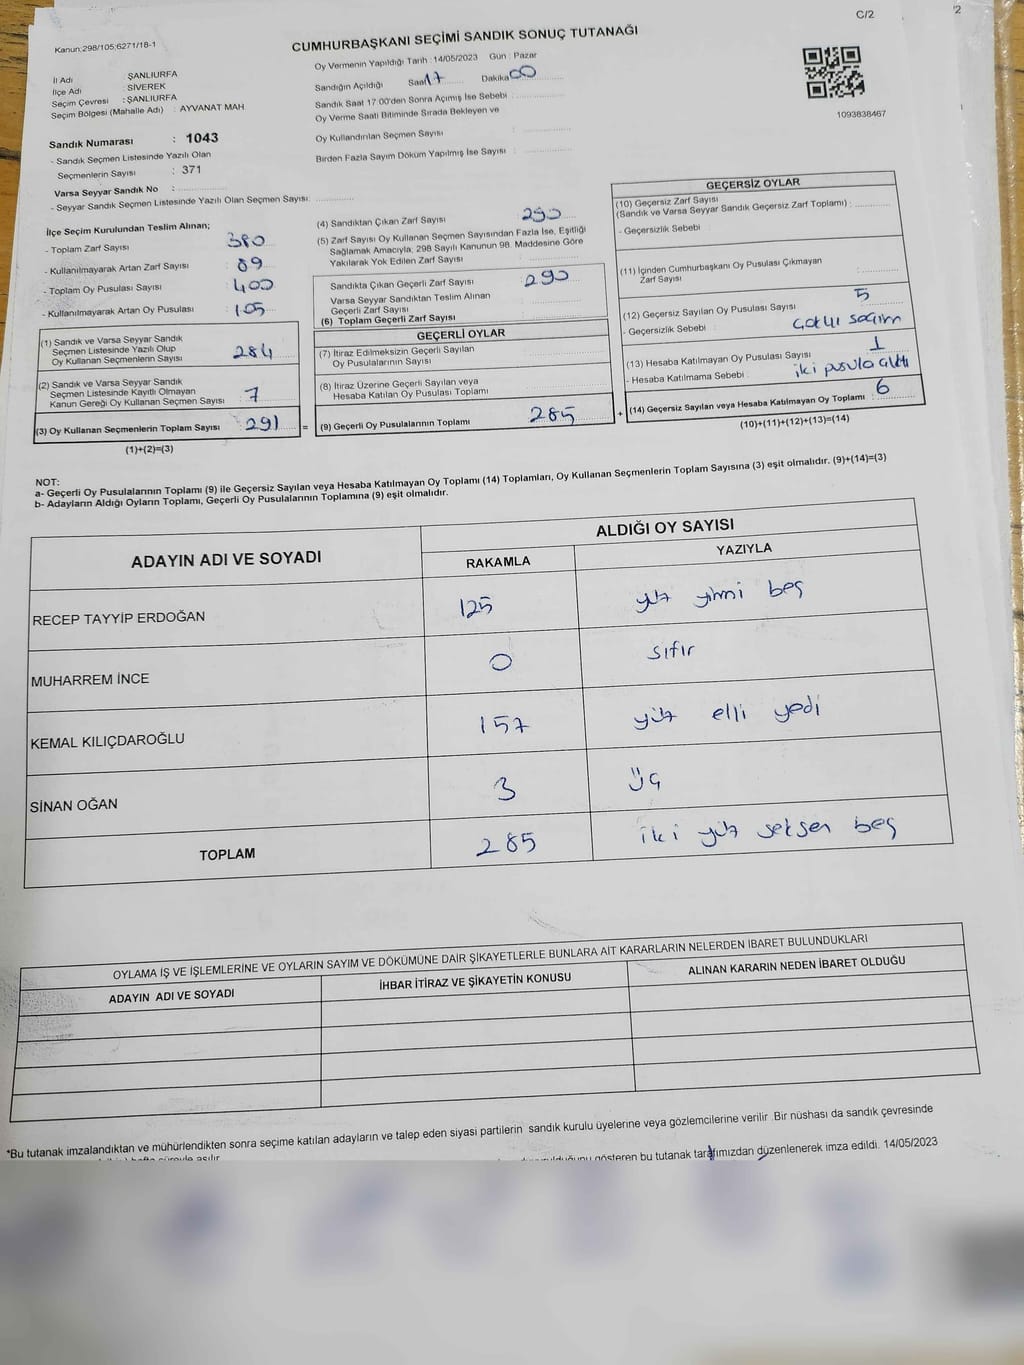 C/2
2
Kanun:298/105;6271/18-1
CUMHURBAŞKANI SEÇİMİ SANDIK SONUÇ TUTANAĞI
İl Adı : ŞANLIURFA
İlçe Adı : SİVEREK
Seçim Çevresi : ŞANLIURFA
Seçim Bölgesi (Mahalle Adı) : AYVANAT MAH.
Sandık Numarası : 1043
- Sandık Seçmen Listesinde Yazılı Olan
Seçmenlerin Sayısı : 371
Varsa Seyyar Sandık No :
- Seyyar Sandık Seçmen Listesinde Yazılı Olan Seçmen Sayısı:
Oy Vermenin Yapıldığı Tarih : 14/05/2023 Gün : Pazar
Sandığın Açıldığı Saat 17 Dakika 00
Sandık Saat 17.00'den Sonra Açımış İse Sebebi :
Oy Verme Saati Bitiminde Sırada Bekleyen ve
Oy Kullandırılan Seçmen Sayısı :
Birden Fazla Sayım Döküm Yapılmış İse Sayısı :
1093838467
İlçe Seçim Kurulundan Teslim Alınan;
- Toplam Zarf Sayısı : 380
- Kullanılmayarak Artan Zarf Sayısı : 89
- Toplam Oy Pusulası Sayısı : 400
- Kullanılmayarak Artan Oy Pusulası : 105
(1) Sandık ve Varsa Seyyar Sandık
Seçmen Listesinde Yazılı Olup
Oy Kullanan Seçmenlerin Sayısı : 284
(2) Sandık ve Varsa Seyyar Sandık
Seçmen Listesinde Kayıtlı Olmayan
Kanun Gereği Oy Kullanan Seçmen Sayısı : 7
(3) Oy Kullanan Seçmenlerin Toplam Sayısı : 291
(1)+(2)=(3)
=
(4) Sandıktan Çıkan Zarf Sayısı : 290
(5) Zarf Sayısı Oy Kullanan Seçmen Sayısından Fazla İse, Eşitliği
Sağlamak Amacıyla, 298 Sayılı Kanunun 98. Maddesine Göre
Yakılarak Yok Edilen Zarf Sayısı :
Sandıkta Çıkan Geçerli Zarf Sayısı : 290
Varsa Seyyar Sandıktan Teslim Alınan
Geçerli Zarf Sayısı :
(6) Toplam Geçerli Zarf Sayısı :
GEÇERLİ OYLAR
(7) İtiraz Edilmeksizin Geçerli Sayılan
Oy Pusulalarının Sayısı :
(8) İtiraz Üzerine Geçerli Sayılan veya
Hesaba Katılan Oy Pusulası Toplamı :
(9) Geçerli Oy Pusulalarının Toplamı : 285
+
GEÇERSİZ OYLAR
(10) Geçersiz Zarf Sayısı
(Sandık ve Varsa Seyyar Sandık Geçersiz Zarf Toplamı) :
- Geçersizlik Sebebi :
(11) İçinden Cumhurbaşkanı Oy Pusulası Çıkmayan
Zarf Sayısı :
(12) Geçersiz Sayılan Oy Pusulası Sayısı : 5
- Geçersizlik Sebebi :
(13) Hesaba Katılmayan Oy Pusulası Sayısı : 1
- Hesaba Katılmama Sebebi : iki pusula
(14) Geçersiz Sayılan veya Hesaba Katılmayan Oy Toplamı : 6
(10)+(11)+(12)+(13)=(14)
NOT:
a- Geçerli Oy Pusulalarının Toplamı (9) ile Geçersiz Sayılan veya Hesaba Katılmayan Oy Toplamı (14) Toplamları, Oy Kullanan Seçmenlerin Toplam Sayısına (3) eşit olmalıdır. (9)+(14)=(3)
b- Adayların Aldığı Oyların Toplamı, Geçerli Oy Pusulalarının Toplamına (9) eşit olmalıdır.
ADAYIN ADI VE SOYADI ALDIĞI OY SAYISI
RAKAMLA YAZIYLA
RECEP TAYYİP ERDOĞAN 125 yüz yirmi beş
MUHARREM İNCE 0 sıfır
KEMAL KILIÇDAROĞLU 157 yüz elli yedi
SİNAN OĞAN 3 üç
TOPLAM 285 iki yüz seksen beş
OYLAMA İŞ VE İŞLEMLERİNE VE OYLARIN SAYIM VE DÖKÜMÜNE DAİR ŞİKAYETLERLE BUNLARA AİT KARARLARIN NELERDEN İBARET BULUNDUKLARI
ADAYIN ADI VE SOYADI İHBAR İTİRAZ VE ŞİKAYETİN KONUSU ALINAN KARARIN NEDEN İBARET OLDUĞU
*Bu tutanak imzalandıktan ve mühürlendikten sonra seçime katılan adayların ve talep eden siyasi partilerin sandık kurulu üyelerine veya gözlemcilerine verilir .Bir nüshası da sandık çevresinde
gösteren bu tutanak tarafımızdan düzenlenerek imza edildi. 14/05/2023